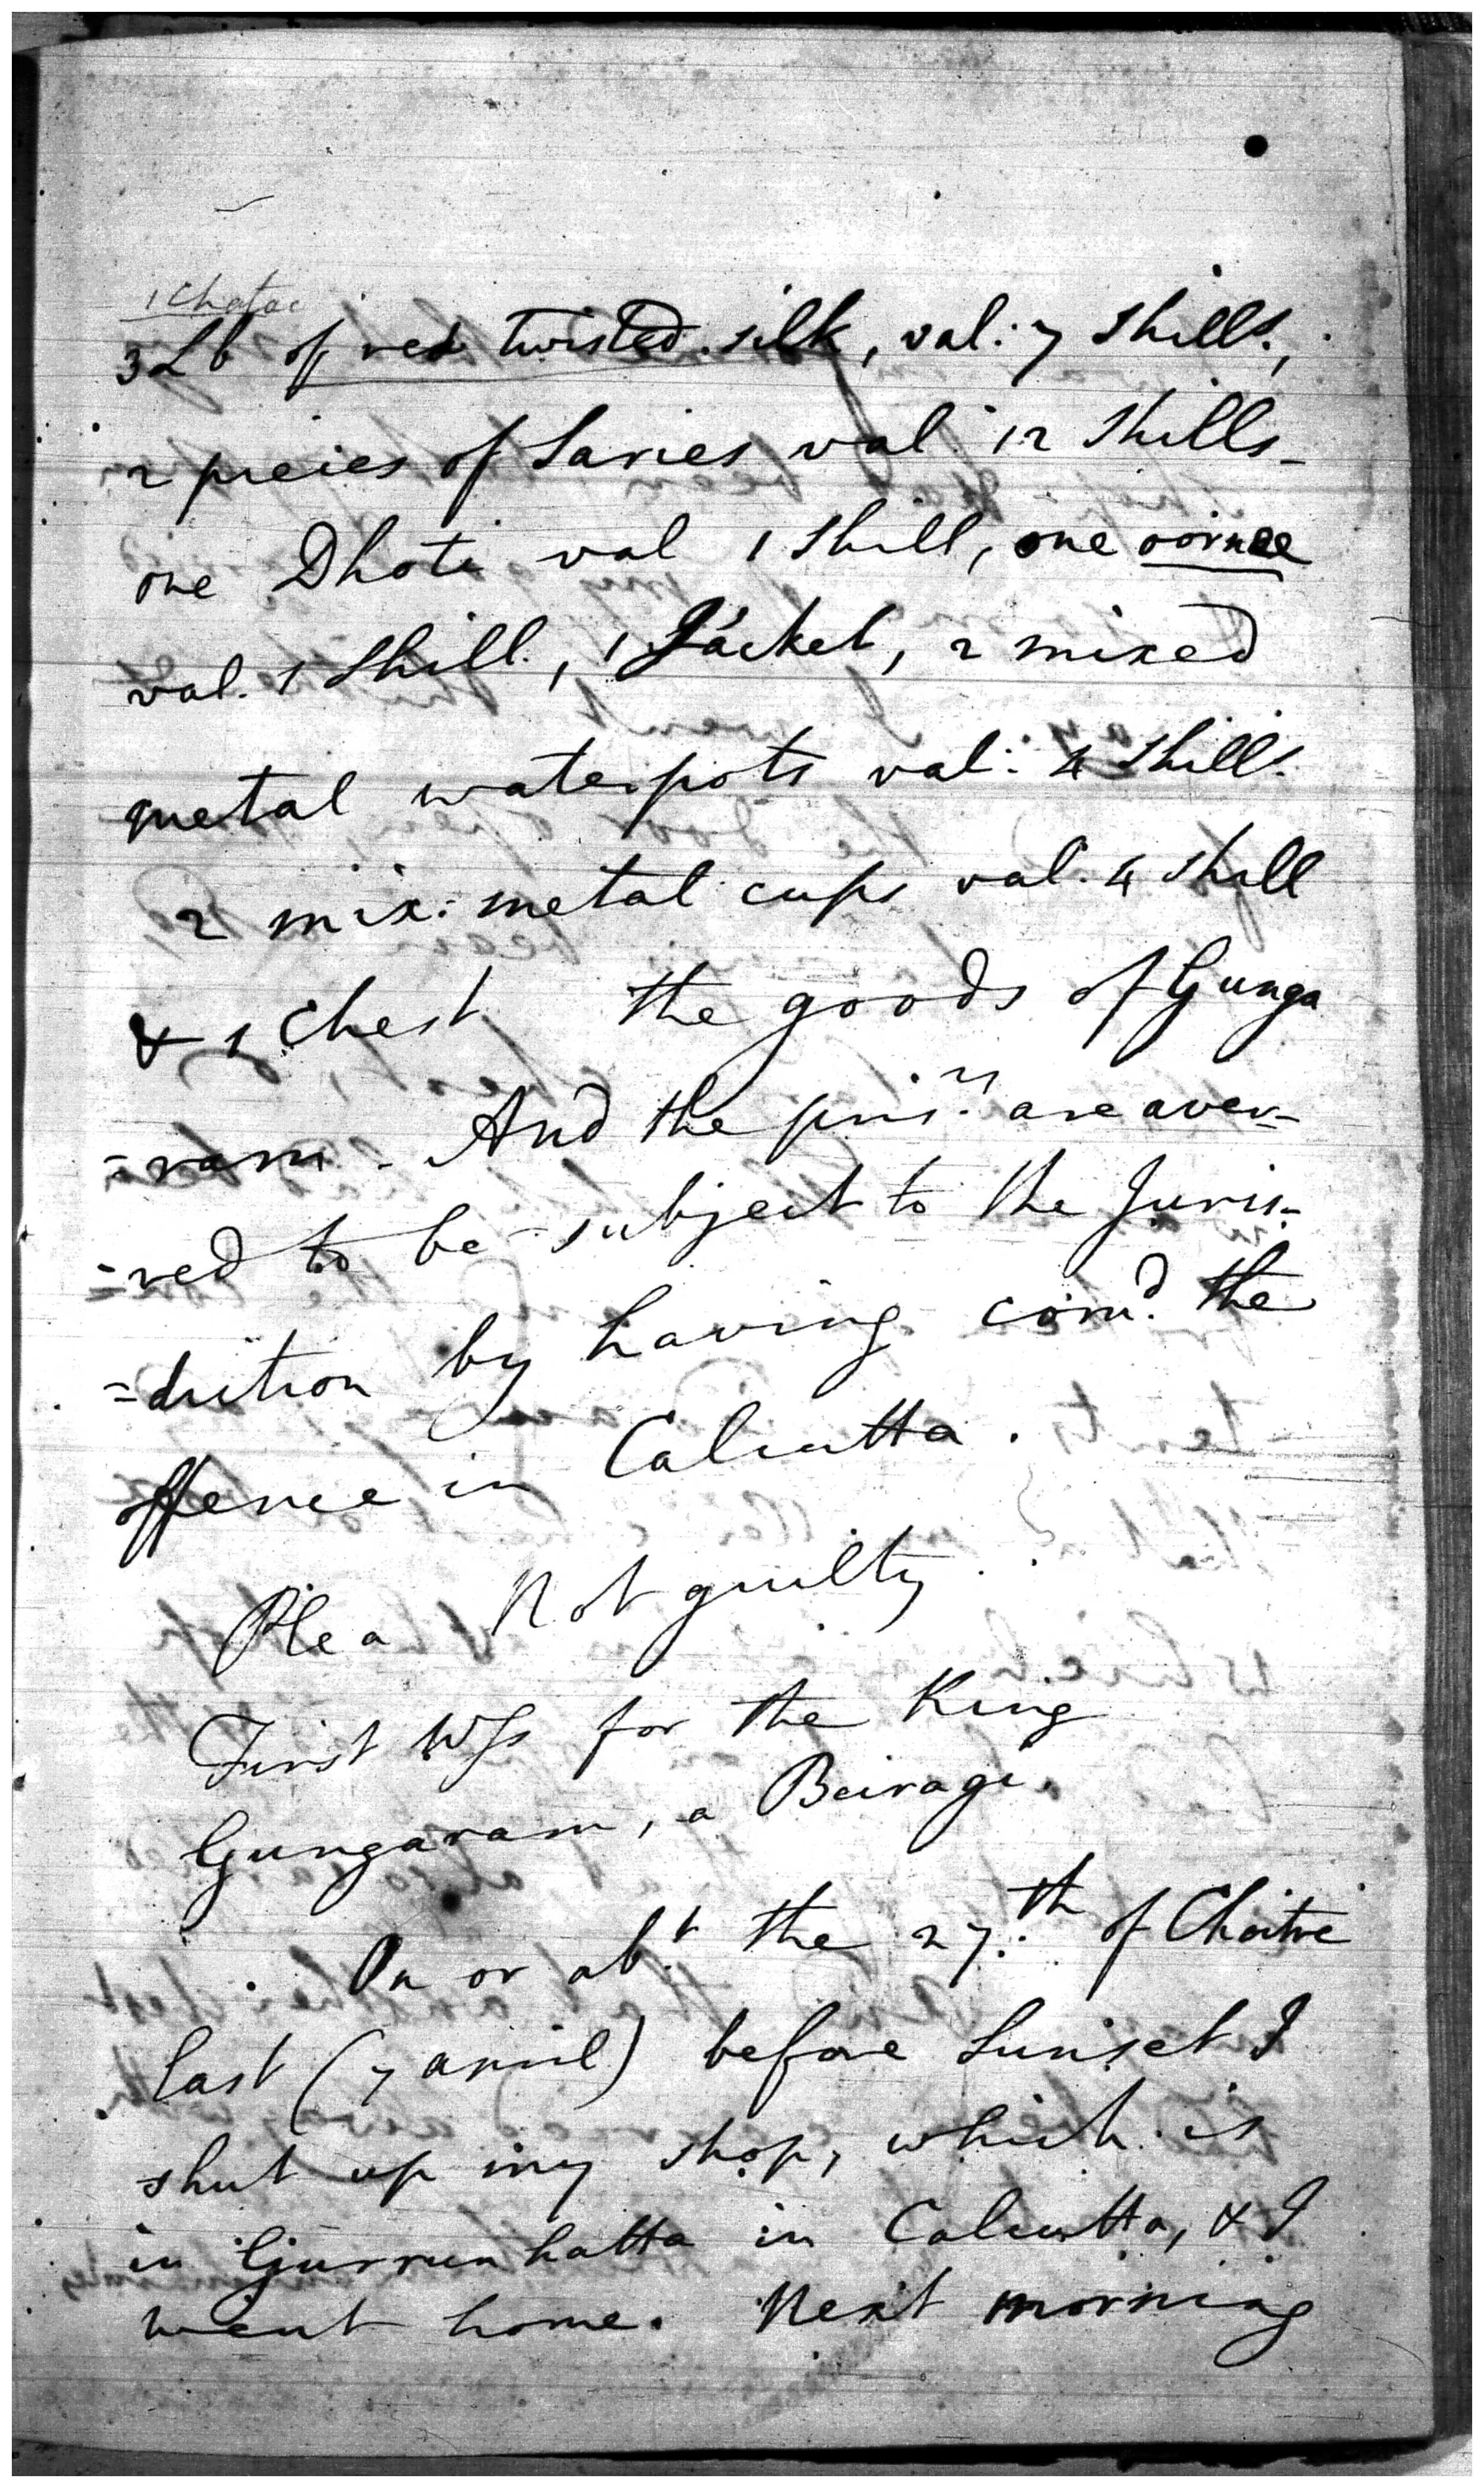 1 Chatac
3 Lb of red twisted silk, val: 7 shills.,
2 pieies of Saries val: 12 shills-
one Dhoti val 1 shill, one oornee
val. 1 shill., 1 Jacket, 2 mixed
metal waterpots val: 4 shills.
2 mix: metal cups val. 4 shill
& 1 Chest the goods of Gunga
=ram - And the pris.rs are aver-
=red to be subject to the Juris-
=diction by having com.d the
offence in Calcutta.
Plea Not guilty.
First Wss for the King
Gungaram, a Bairagi.
On or ab.t the 27.th of Choitre
last (7 april) before sunset I
shut up my shop, which is
in Gurranhatta in Calcutta, & I
went home. Next morning